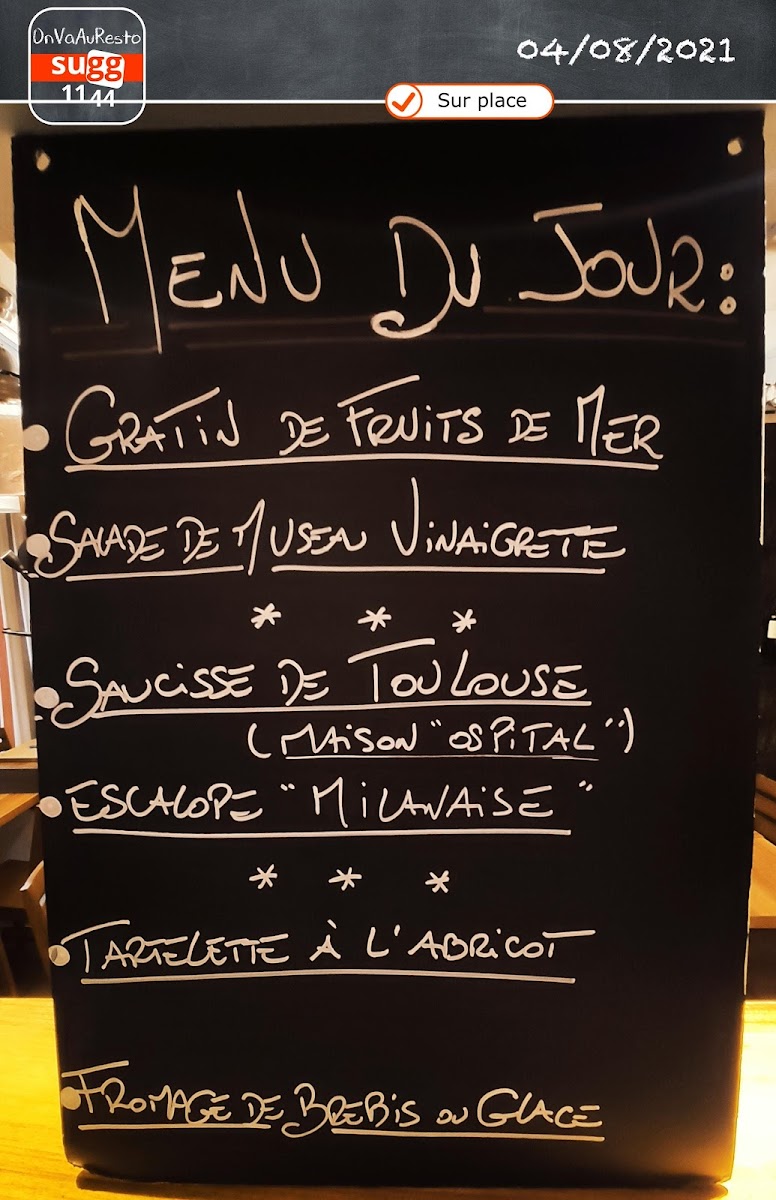 OnVaAuResto
sugg
1144
04/08/2021
Sur place
MENU DU JOUR:
GRATIN DE FRUITS DE MER
SALADE DE MUSEAU VINAIGRETTE
* * *
SAUCISSE DE TOULOUSE
(MAISON "OSPITAL")
ESCALOPE "MILANAISE"
* * *
TARTELETTE À L'ABRICOT
FROMAGE DE BREBIS OU GLACE